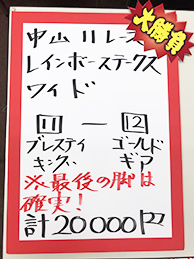 大勝負
中山11レース
レインボーステークス
ワイド
11 ― 12
ブレスティ ゴールド
キング ギア
※最後の脚は
確実!
計20000円